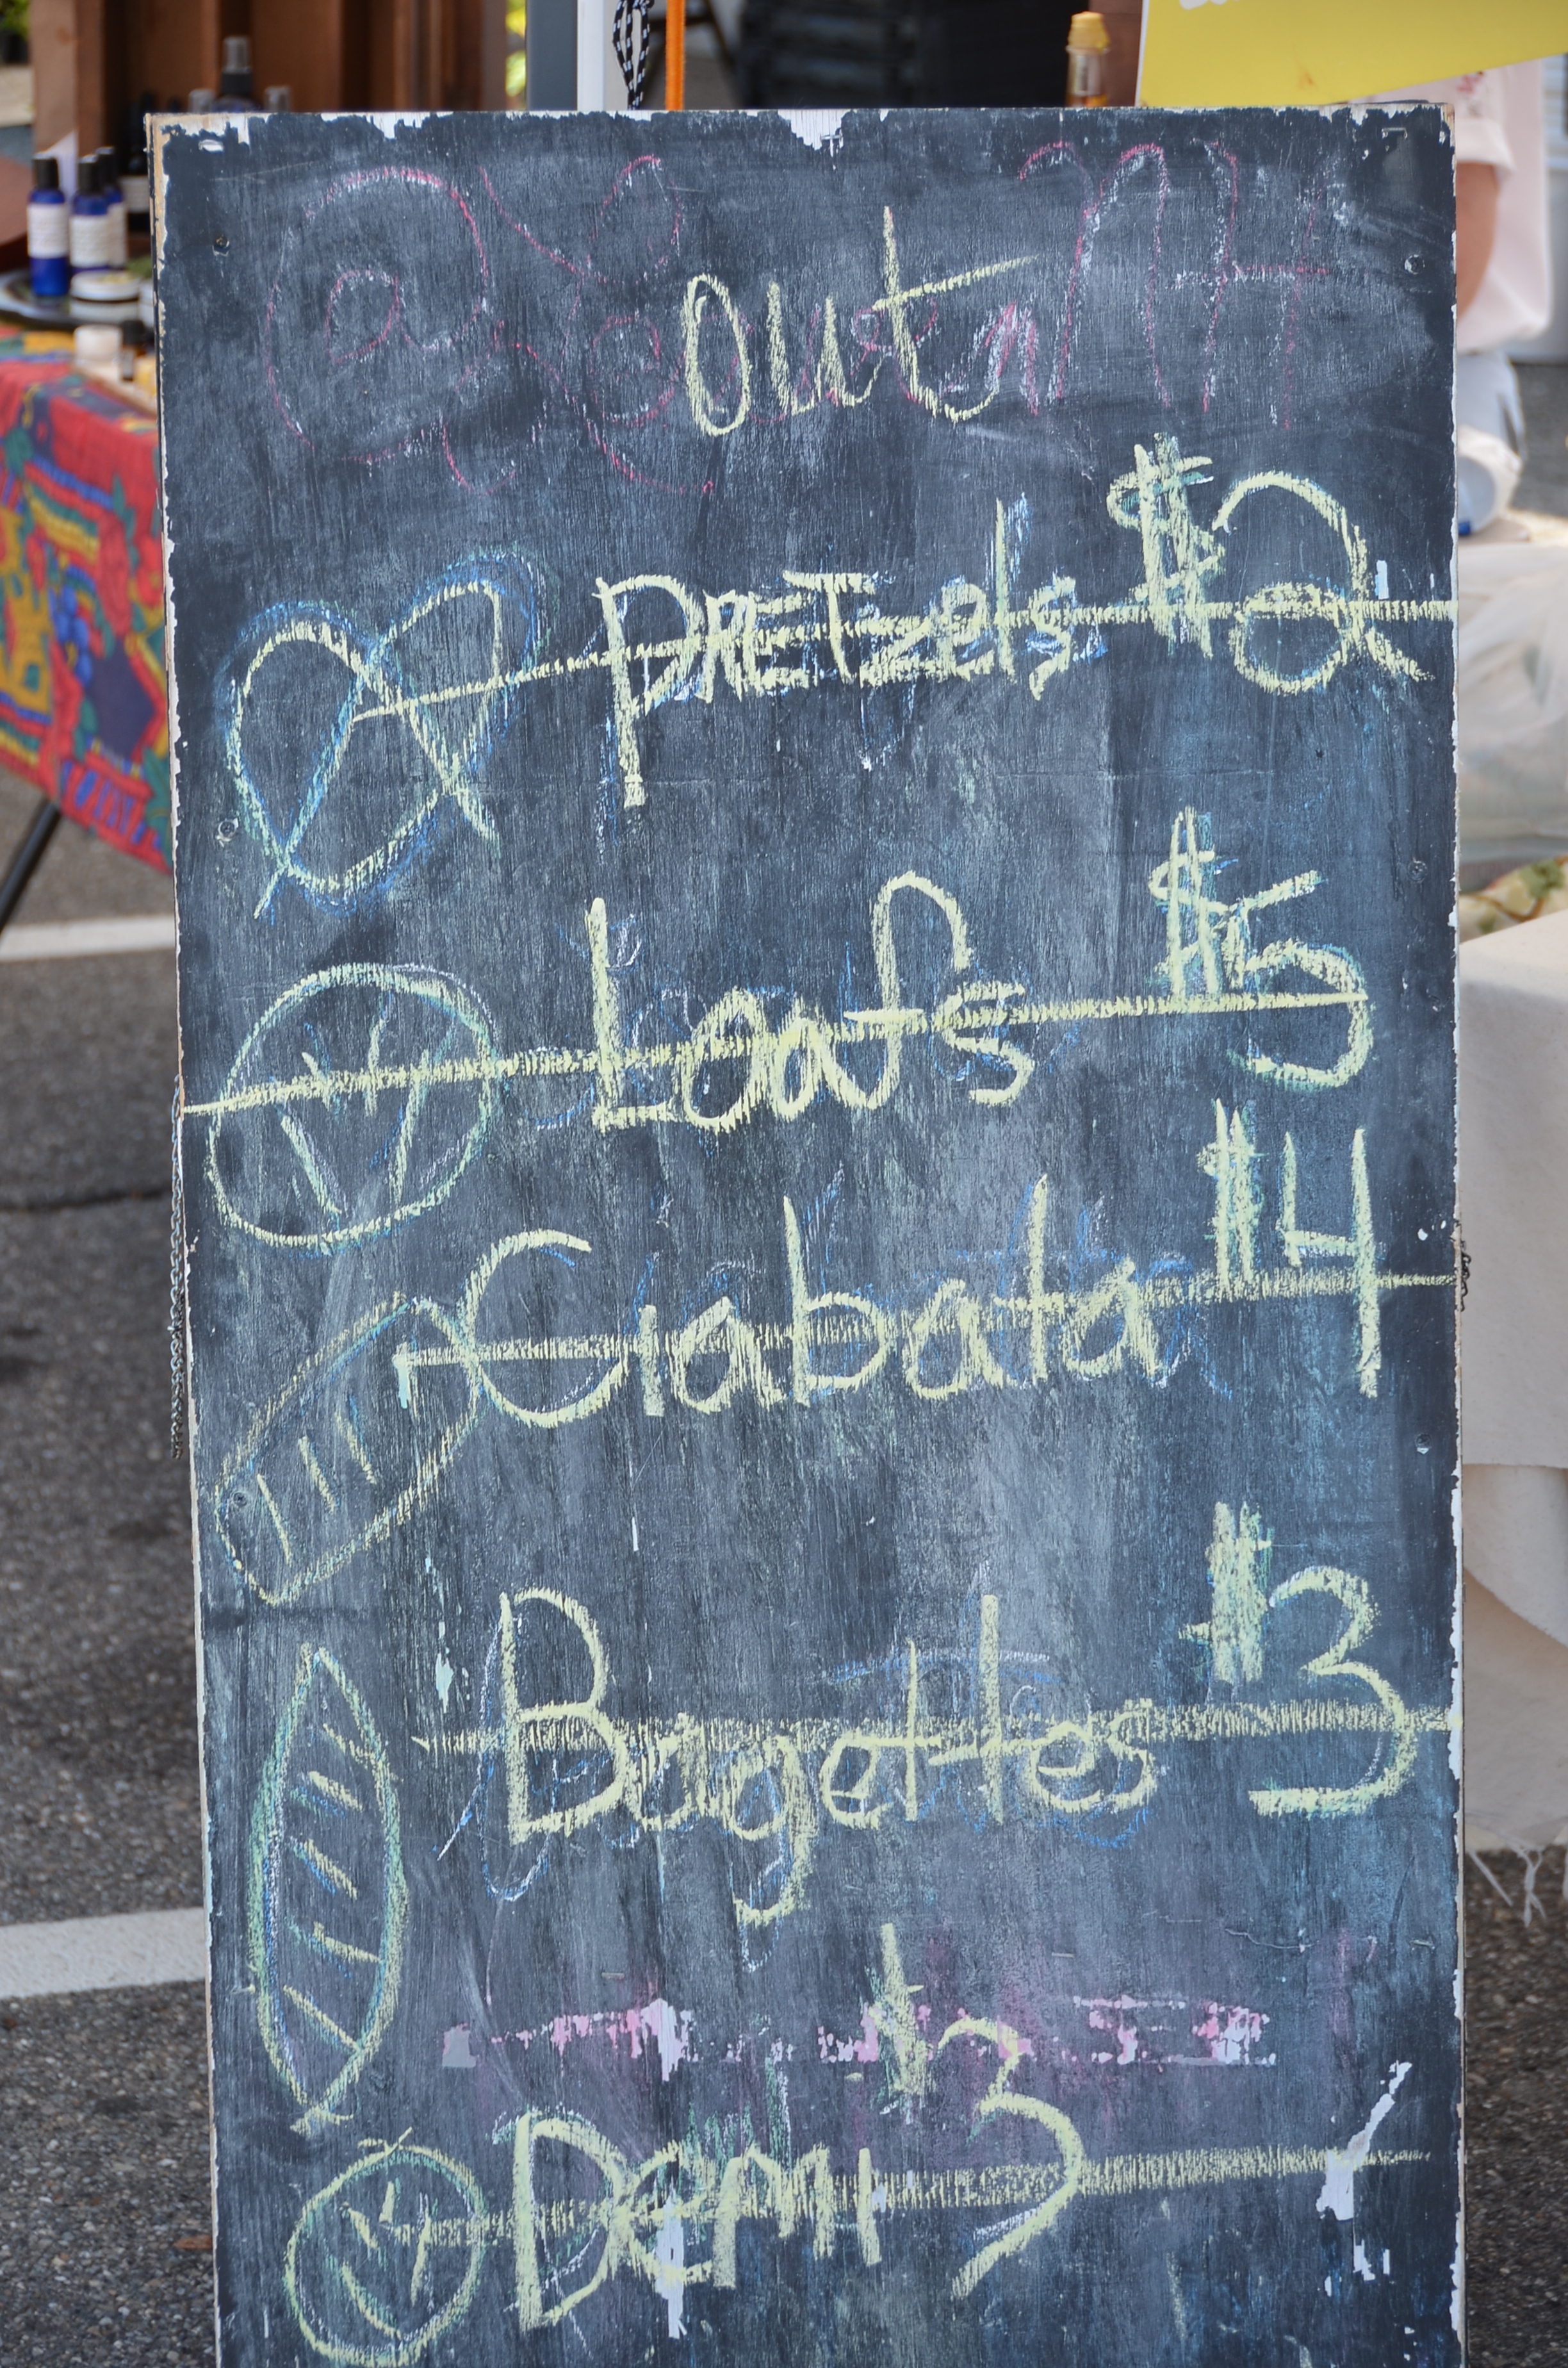 out
PRETzels $2
Loafs $5
Ciabata $4
Bagettes $3
Demi $3